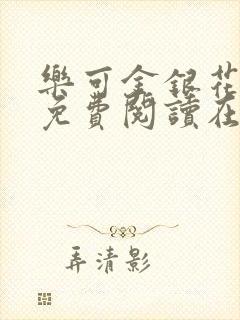 樂可金銀花
免費閱讀在
弄清影